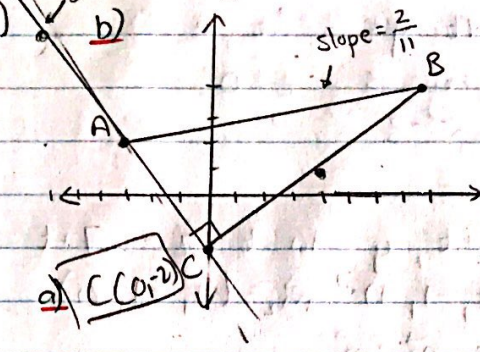 )
b)
slope = 2/11
B
A
C
a) C(0,-2)